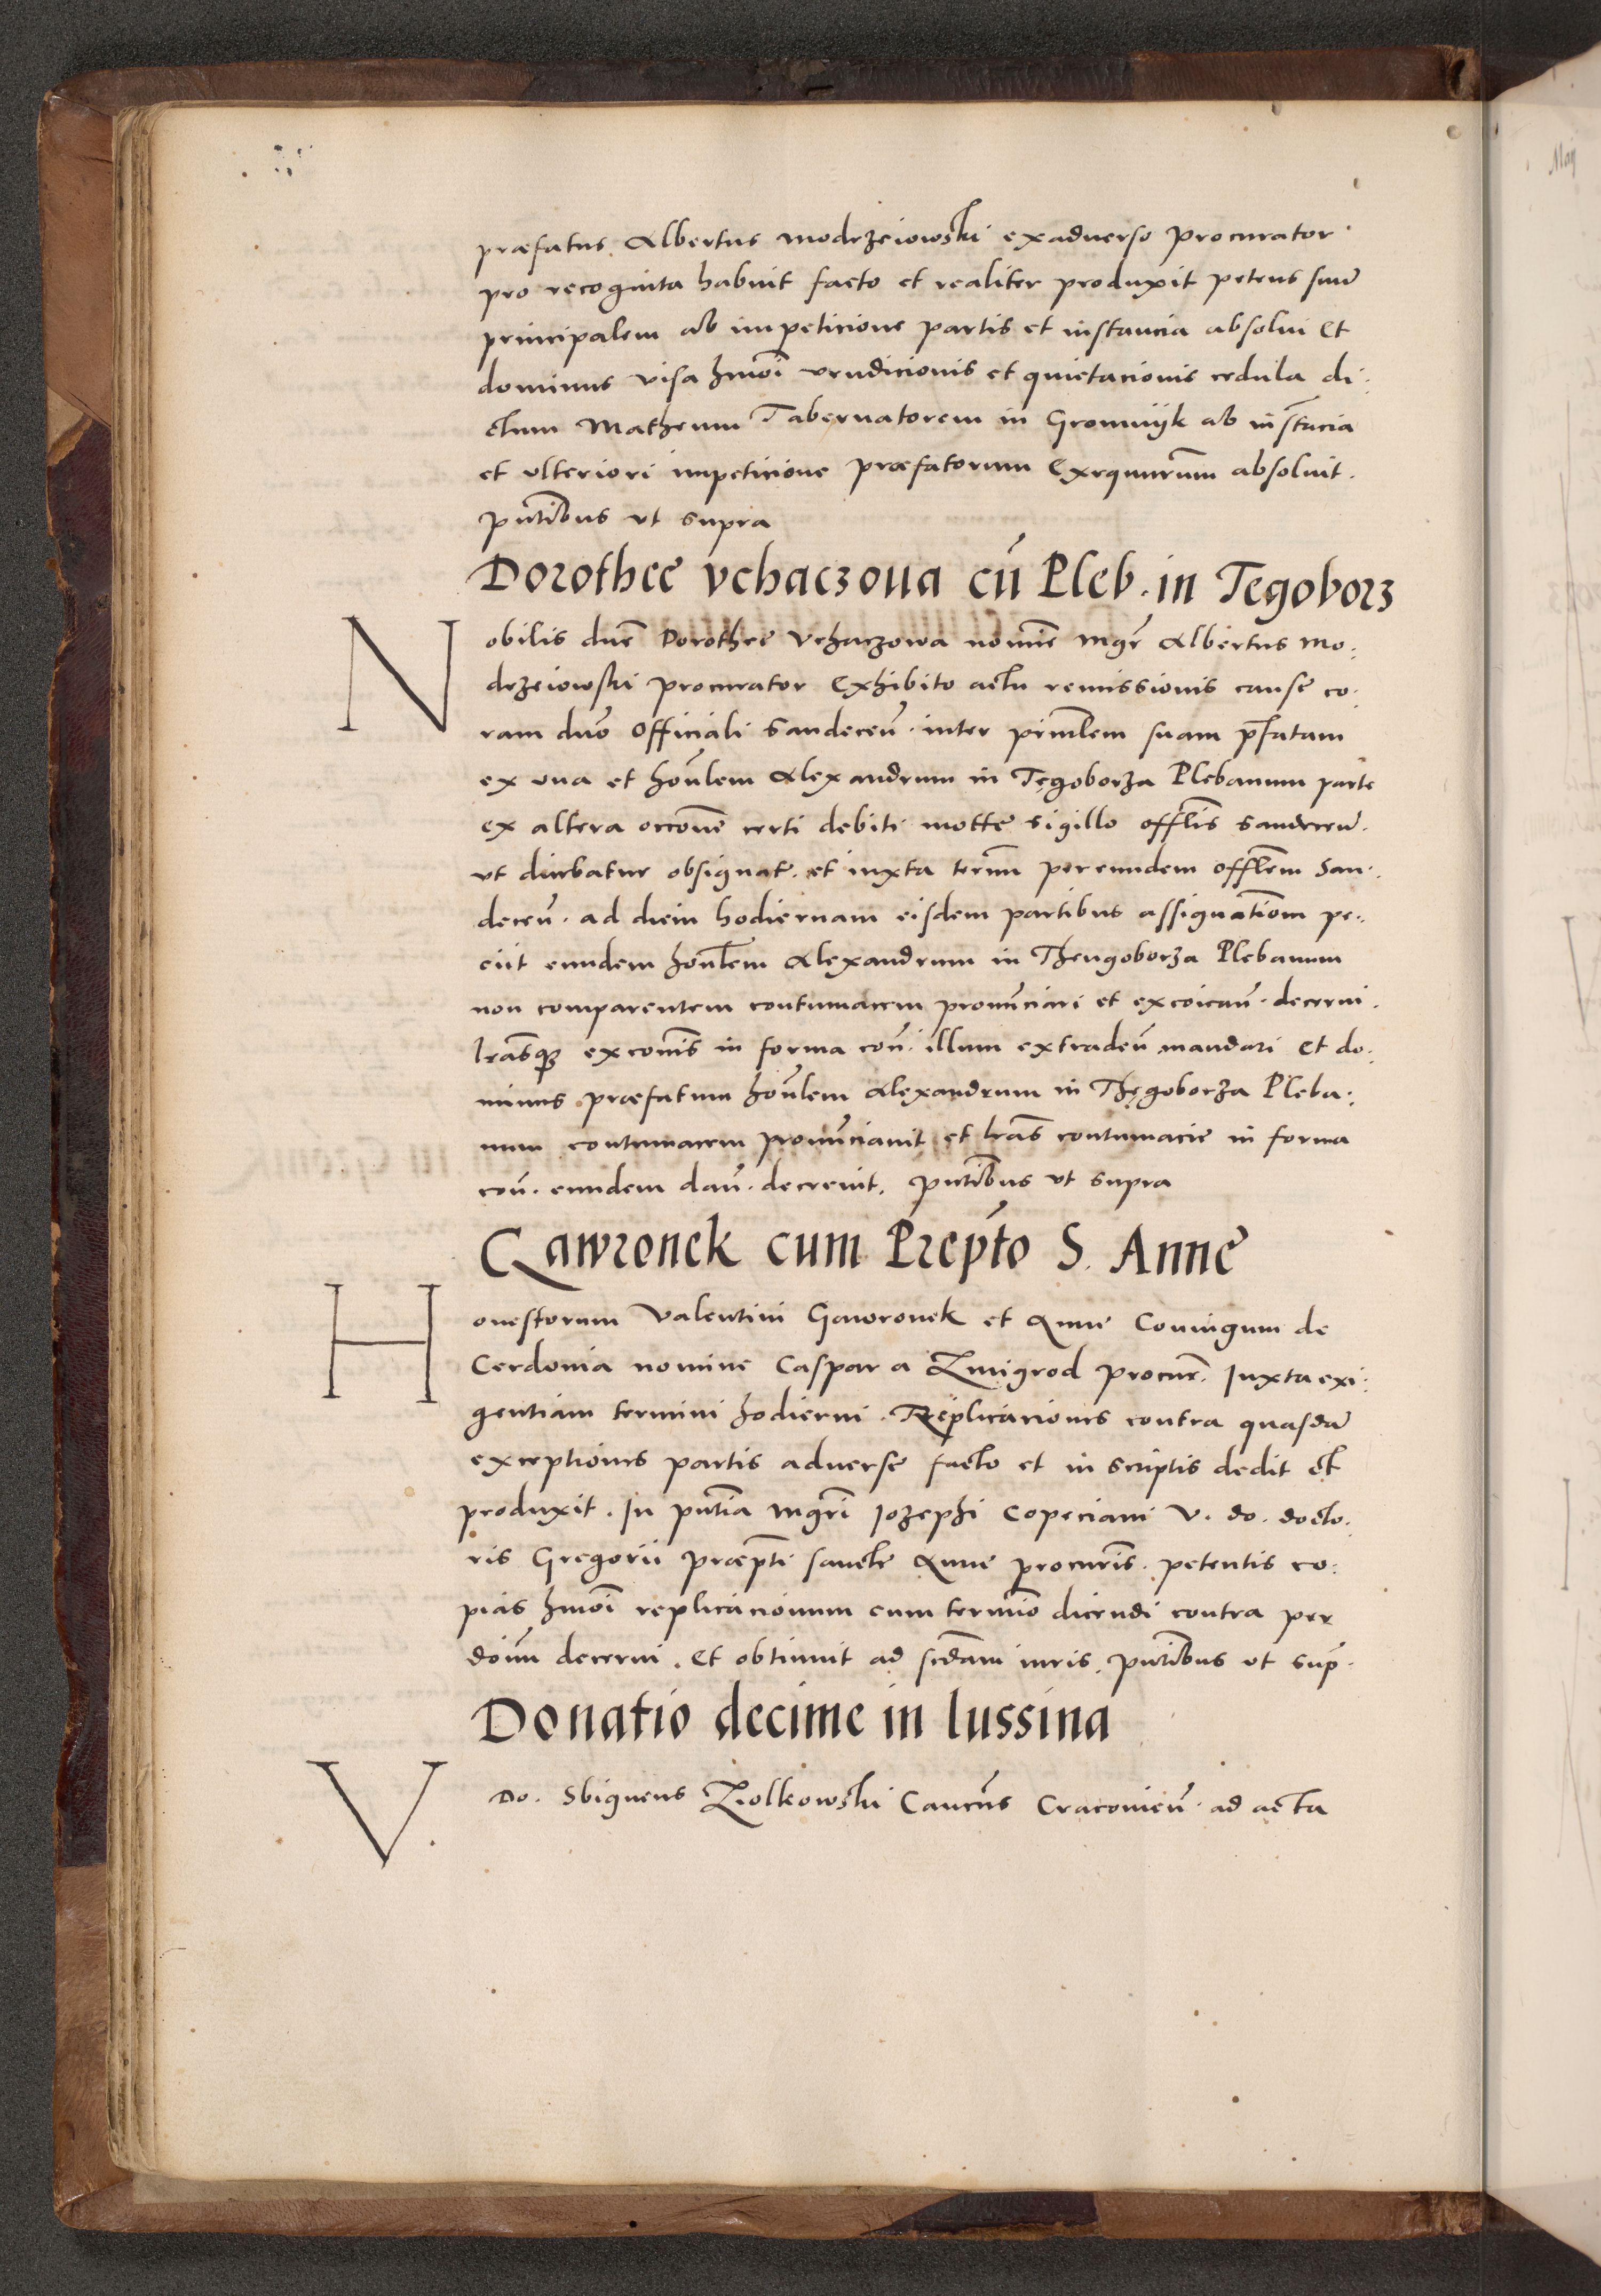 præfatus Albertus modrzeiowski exaduerso procurator
pro recognita habuit facto et realiter produxit petens suũ
principalem ab impeticione partis et instancia absolui Et
dominus visa hmõi vendicionis et quietacionis cedula di:
ctum Matheum Tabernatorem in Gromnijk ab instãcia
et vlteriori impeticione præfatorum Exequutum̃ absoluit.
pñtibus vt supra
Dorothee vchaczoua cũ Pleb. in Tegoborz
Nobilis dnẽ Dorothee Vchaczowa nomiẽ mgr̃ Albertus mo:
drzeiowski procurator Exhibito actu remissionis cause co:
ram dnõ Officiali Sandeceñ. inter prinlem̃ suam p̃fatam
ex vna et hoñlem Alexandrum in Tęgoborza Plebanum parte
ex altera occonẽ certi debiti motte sigillo offlĩs Sandeceñ.
vt dicebatur obsignat. et iuxta termũ per eundem offlẽm San:
deceñ. ad diem hodiernam eisdem partibus assignatiom̃ pe:
ciit eundem hoñlem Alexandrum in Thengoborza Plebanum
non comparentem contumacem pronũnciari et excõicañ. decerni.
lrãsq3 exconĩs in forma coñ. illum extradeñ mandari Et do:
minus præfatum hoñlem Alexandrum in Thęgoborza Pleba:
num contumacem pronũnciauit et lrãs contumacie in forma
coñ. eundem dañ. decreuit. pñtibus vt supra
Gawronek cum Prepto S. Anne
Honestorum Valentini Gawronek et Anne Coniugum de
Cerdonia nomine Caspar a Zmigrod procur̃. Iuxta exi:
gentiam termini hodierni. Replicaciones contra quasdã
exceptiones partis aduerse facto et in scriptis dedit et
produxit. In pñtia mgrĩ Iozephi Copeciani V. do. docto:
ris Gregorii præptĩ sancte Anne procurĩs. petentis co:
pias hmõi replicacionum cum termiõ dicendi contra per
doĩm decerni. Et obtinuit ad scdam̃ iuris. pñtibus vt sup̃.
Donatio decime in lussina
V. Do. Sbigneus Ziolkowski Canc̃us Cracouieñ. ad acta